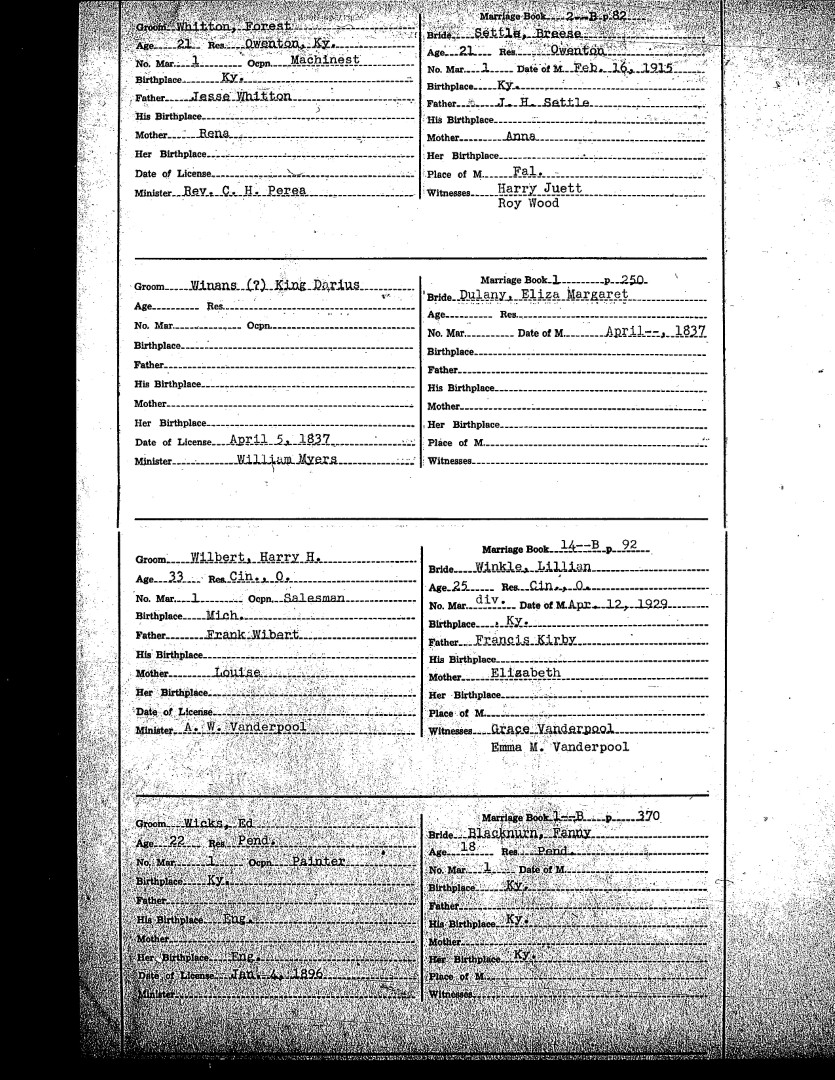 Groom Whitton, Forest
Age 21 Res Owenton, Ky.
No. Mar. 1 Ocpn. Machinest
Birthplace Ky.
Father Jesse Whitton
His Birthplace
Mother Rena
Her Birthplace
Date of License
Minister Rev. C. H. Perea
Marriage Book 2--B p. 82
Bride Settle, Breese
Age 21 Res Owenton
No. Mar. 1 Date of M. Feb. 16, 1915
Birthplace Ky.
Father J. H. Settle
His Birthplace
Mother Anna
Her Birthplace
Place of M. Fal.
Witnesses Harry Juett
Roy Wood
Groom Winans (?) King Darius
Age Res.
No. Mar. Ocpn.
Birthplace
Father
His Birthplace
Mother
Her Birthplace
Date of License April 5, 1837
Minister William Myers
Marriage Book 1 p. 250
Bride Dulany, Eliza Margaret
Age Res.
No. Mar. Date of M. April--, 1837
Birthplace
Father
His Birthplace
Mother
Her Birthplace
Place of M.
Witnesses
Groom Wilbert, Harry H.
Age 33 Res Cin., O.
No. Mar. 1 Ocpn. Salesman
Birthplace Mich.
Father Frank Wibert
His Birthplace
Mother Louise
Her Birthplace
Date of License
Minister A. W. Vanderpool
Marriage Book 14--B p. 92
Bride Winkle, Lillian
Age 25 Res. Cin., O.
No. Mar. div. Date of M. Apr. 12, 1929
Birthplace Ky.
Father Francis Kirby
His Birthplace
Mother Elisabeth
Her Birthplace
Place of M.
Witnesses Grace Vanderpool
Emma M. Vanderpool
Groom Wicks, Ed
Age 22 Res Pend.
No. Mar. 1 Ocpn Painter
Birthplace Ky.
Father
His Birthplace Eng.
Mother
Her Birthplace Eng.
Date of License Jan. 4, 1896
Minister
Marriage Book 1--B p. 370
Bride Blacknurn, Fanny
Age 18 Res Pend.
No. Mar. 1 Date of M.
Birthplace Ky.
Father
His Birthplace Ky.
Mother
Her Birthplace Ky.
Place of M.
Witnesses